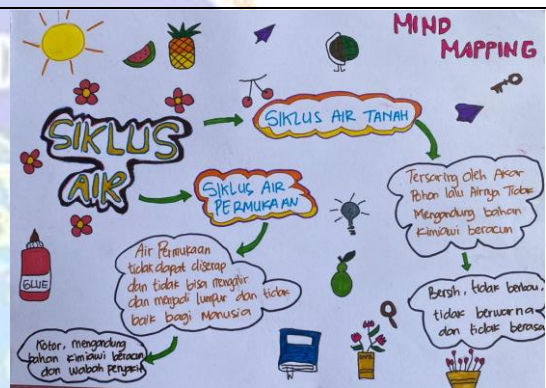 MIND
MAPPING
SIKLUS
AIR
SIKLUS AIR TANAH
Tersaring oleh Akar
Pohon lalu Airnya Tidak
Mengandung bahan
kimiawi beracun
Bersih, tidak berbau,
tidak berwarna
dan tidak berasa
SIKLUS AIR
PERMUKAAN
Air Permukaan
tidak dapat diserap
dan tidak bisa mengalir
dan menjadi lumpur dan tidak
baik bagi Manusia
Kotor, mengandung
bahan kimiawi beracun
dan wabah penyakit
GLUE